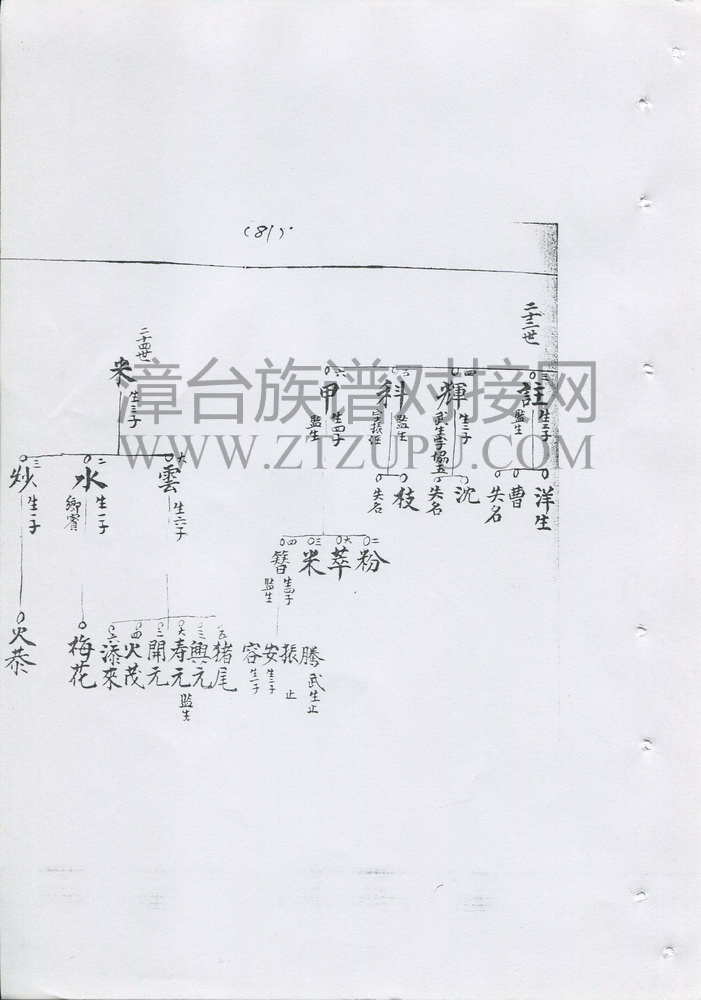 (81)
二十三世
三
註
生三子
監生
洋生
曹
失名
四
輝
生二子
武生
沈
失名
五
科
監生
枝
失名
六
甲
生四子
監生
二
粉
大
萃
三
米
四
簪
生四子
監生
騰
武生止
振
止
安
生二子
容
生一子
二十四世
米
生三子
大
雲
生六子
二
水
生一子
鄉賓
三
炒
生一子
五
猪尾
三
興元
大
寿元
監生
二
開元
四
火茂
六
添來
梅花
火恭
漳台族谱对接网
WWW.ZTZUPU.COM